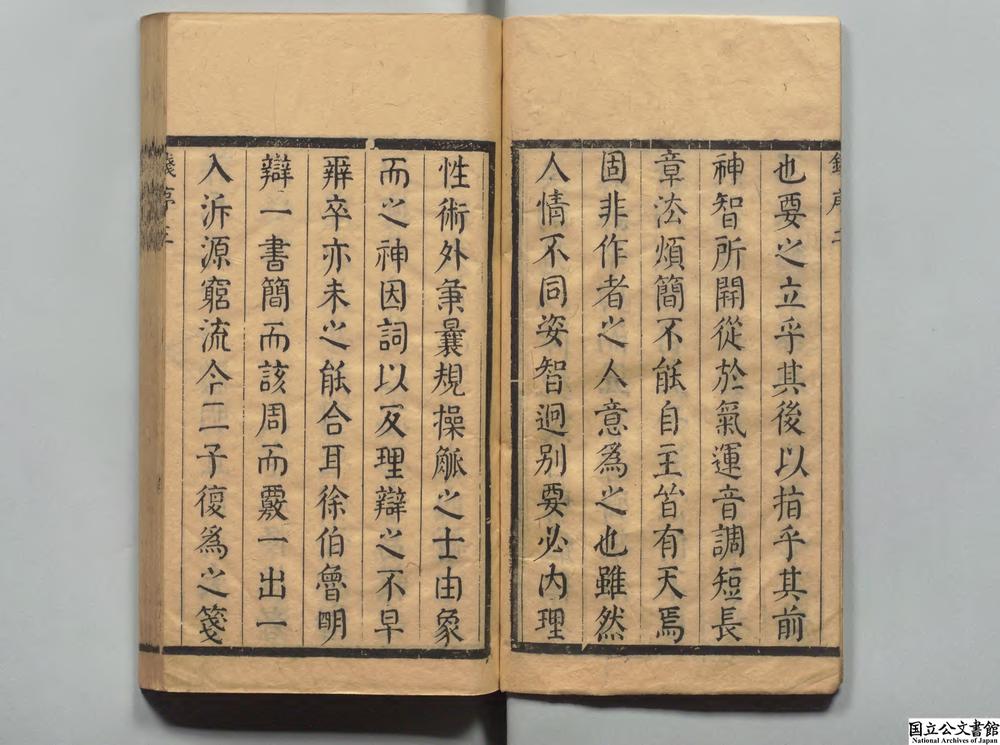 也要之立乎其後以指乎其前
神智所開從於氣運音調短長
章法煩簡不能自主皆有天焉
固非作者之人意為之也雖然
人情不同姿智迥别要必内理
性術外秉曩規操觚之士由象
而之神因詞以反理辯之不早
辨卒亦未之能合耳徐伯魯明
辯一書簡而該周而覈一出一
入泝源窮流今二子復為之箋
国立公文書館
National Archives of Japan